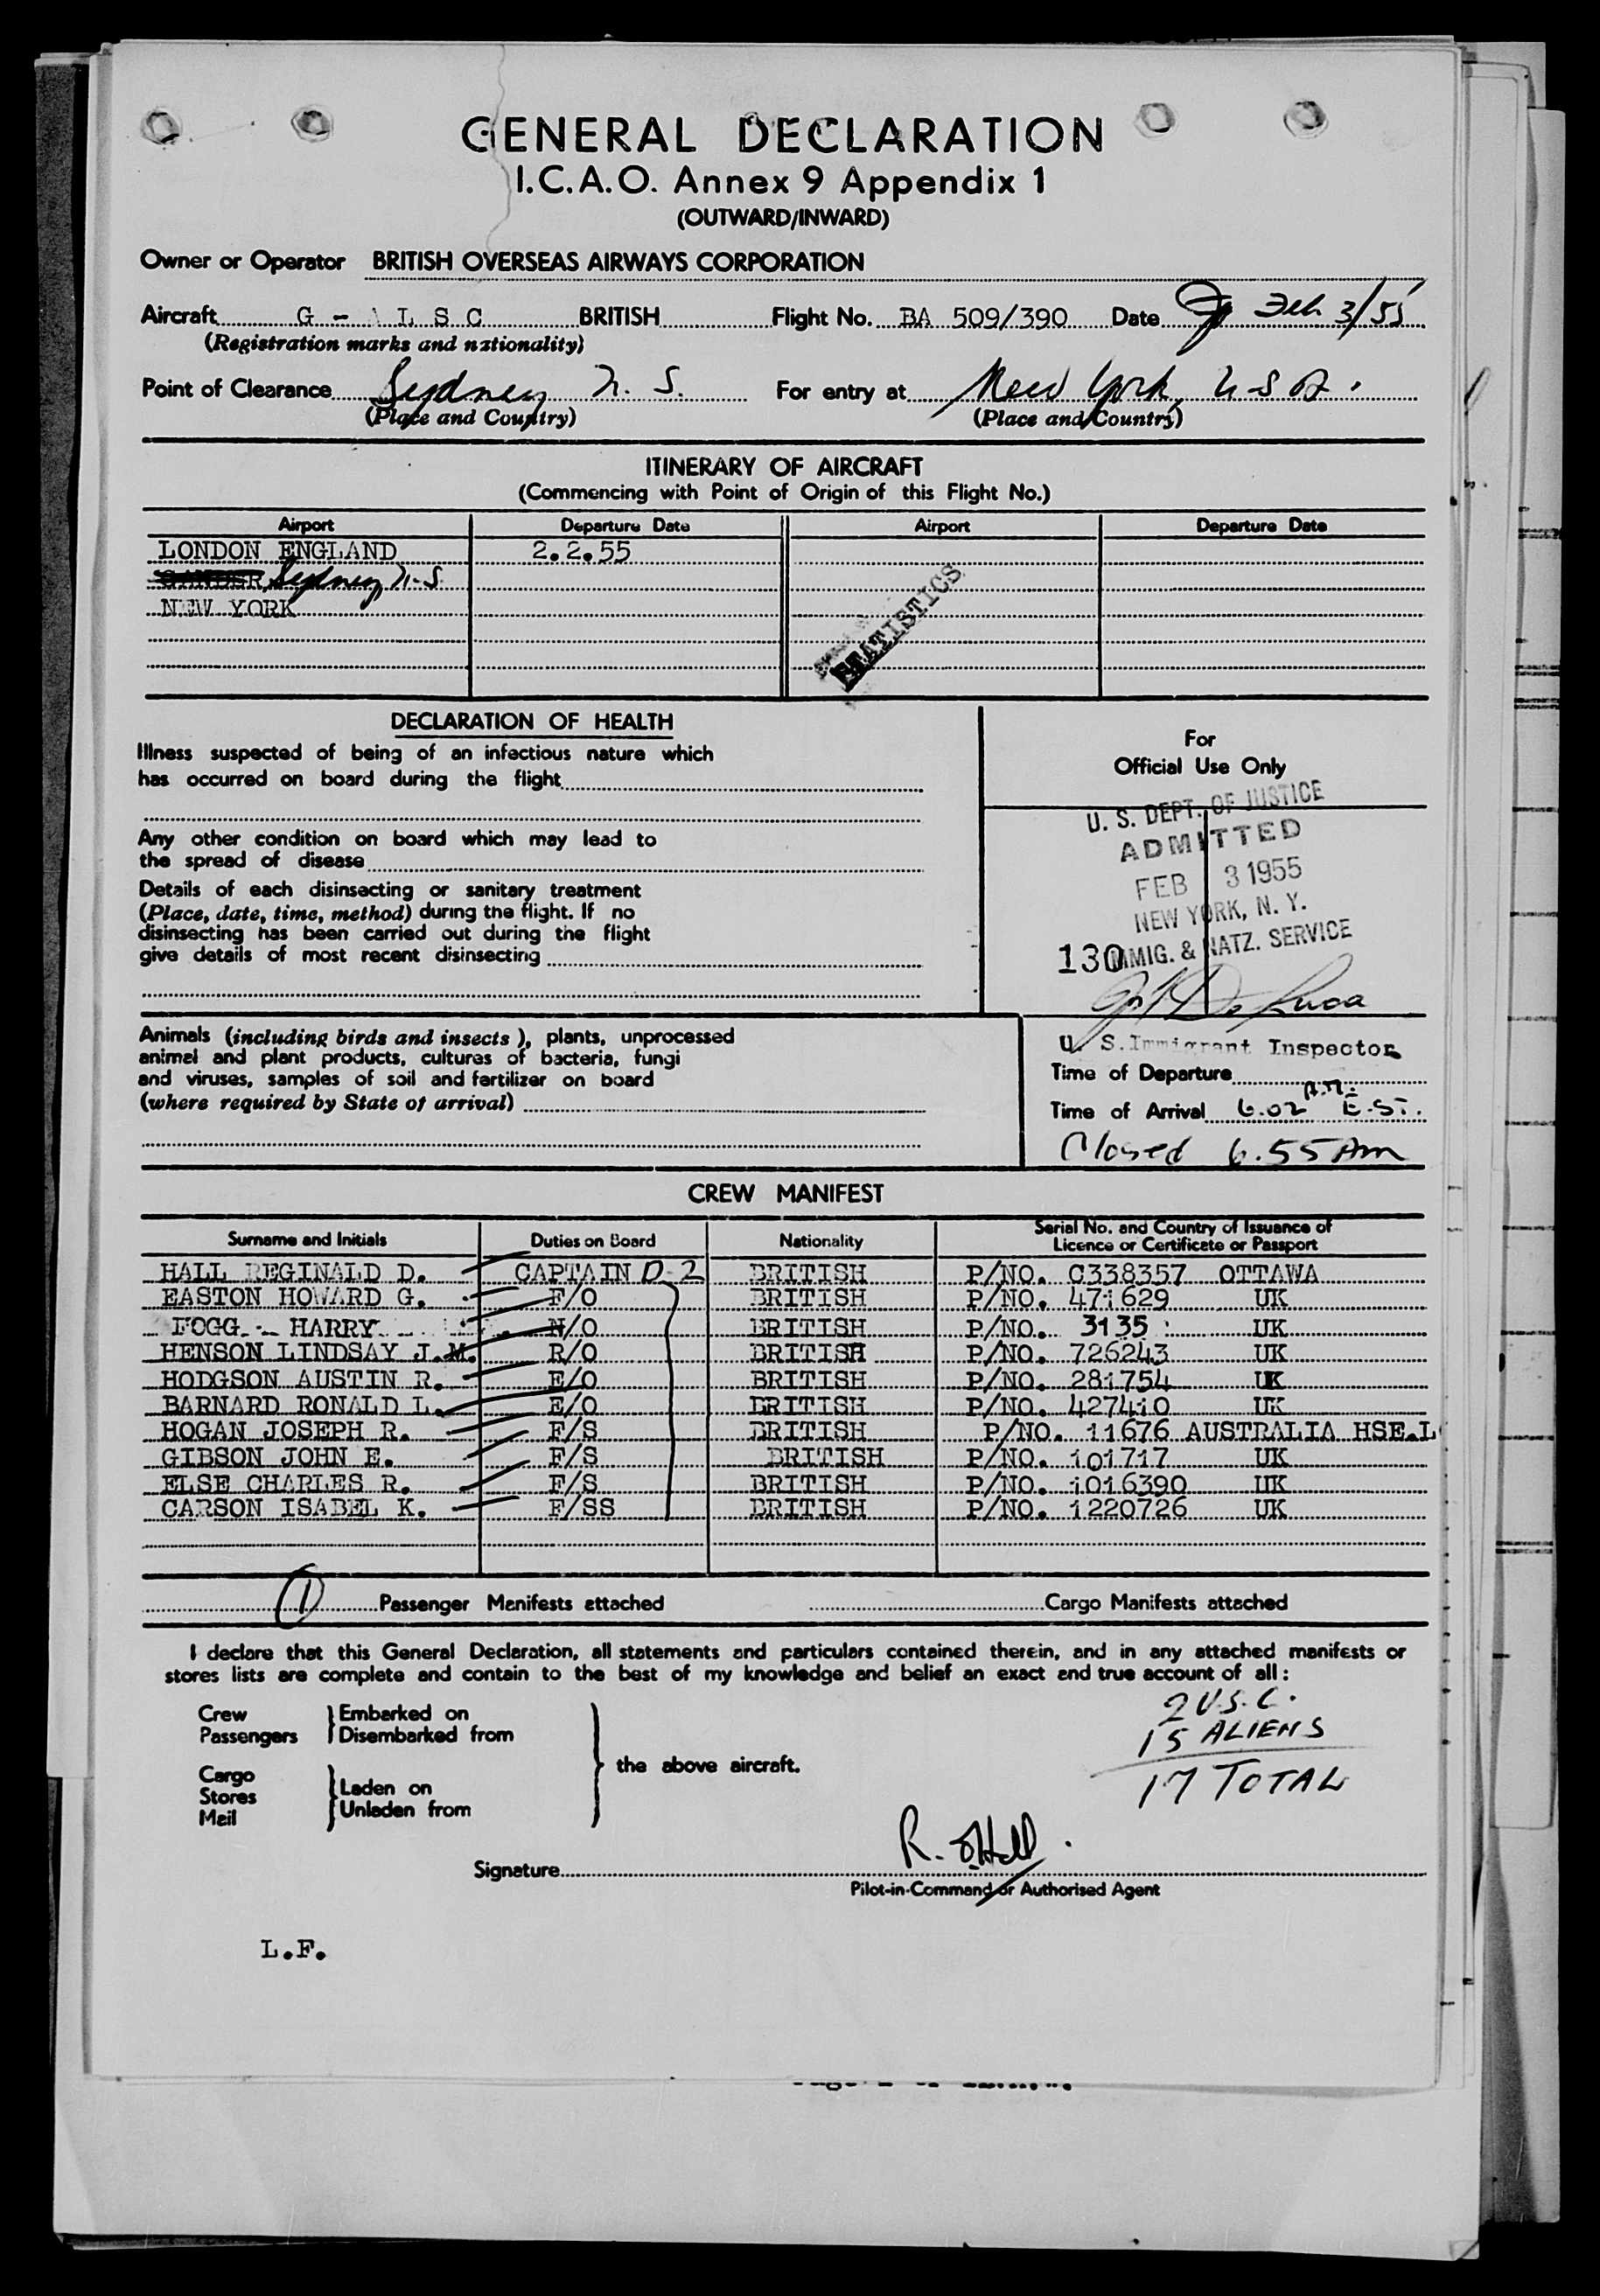 GENERAL DECLARATION
I.C.A.O. Annex 9 Appendix 1
(OUTWARD/INWARD)
Owner or Operator BRITISH OVERSEAS AIRWAYS CORPORATION
Aircraft G - A L S C BRITISH Flight No. BA 509/390 Date Feb 3/55
(Registration marks and nationality)
Point of Clearance Sydney N. S. For entry at New York, U S A.
(Place and Country) (Place and Country)
ITINERARY OF AIRCRAFT
(Commencing with Point of Origin of this Flight No.)
Airport Departure Date Airport Departure Date
LONDON ENGLAND 2.2.55
GANDER Sydney N.S.
NEW YORK
STATISTICS
DECLARATION OF HEALTH
Illness suspected of being of an infectious nature which
has occurred on board during the flight
Any other condition on board which may lead to
the spread of disease
Details of each disinsecting or sanitary treatment
(Place, date, time, method) during the flight. If no
disinsecting has been carried out during the flight
give details of most recent disinsecting
For
Official Use Only
U. S. DEPT. OF JUSTICE
ADMITTED
FEB 3 1955
NEW YORK, N. Y.
130 IMMIG. & NATZ. SERVICE
De Luca
U. S. Immigrant Inspector
Animals (including birds and insects), plants, unprocessed
animal and plant products, cultures of bacteria, fungi
and viruses, samples of soil and fertilizer on board
(where required by State of arrival)
Time of Departure
Time of Arrival 6.02 A.M. E.S.T.
Closed 6.55 AM
CREW MANIFEST
Surname and Initials Duties on Board Nationality Serial No. and Country of Issuance of Licence or Certificate or Passport
HALL REGINALD D. CAPTAIN D-2 BRITISH P/NO. C338357 OTTAWA
EASTON HOWARD G. F/O BRITISH P/NO. 471629 UK
FOGG HARRY N/O BRITISH P/NO. 3135 UK
HENSON LINDSAY J.M. R/O BRITISH P/NO. 726243 UK
HODGSON AUSTIN R. E/O BRITISH P/NO. 281754 UK
BARNARD RONALD L. E/O BRITISH P/NO. 427410 UK
HOGAN JOSEPH R. F/S BRITISH P/NO. 11676 AUSTRALIA HSE.L
GIBSON JOHN E. F/S BRITISH P/NO. 101717 UK
ELSE CHARLES R. F/S BRITISH P/NO. 1016390 UK
CARSON ISABEL K. F/SS BRITISH P/NO. 1220726 UK
1 Passenger Manifests attached Cargo Manifests attached
I declare that this General Declaration, all statements and particulars contained therein, and in any attached manifests or
stores lists are complete and contain to the best of my knowledge and belief an exact and true account of all :
Crew Embarked on
Passengers Disembarked from
the above aircraft.
Cargo
Stores Laden on
Mail Unladen from
2 U.S.C.
15 ALIENS
17 TOTAL
Signature R. D. Hall
Pilot-in-Command or Authorised Agent
L.F.